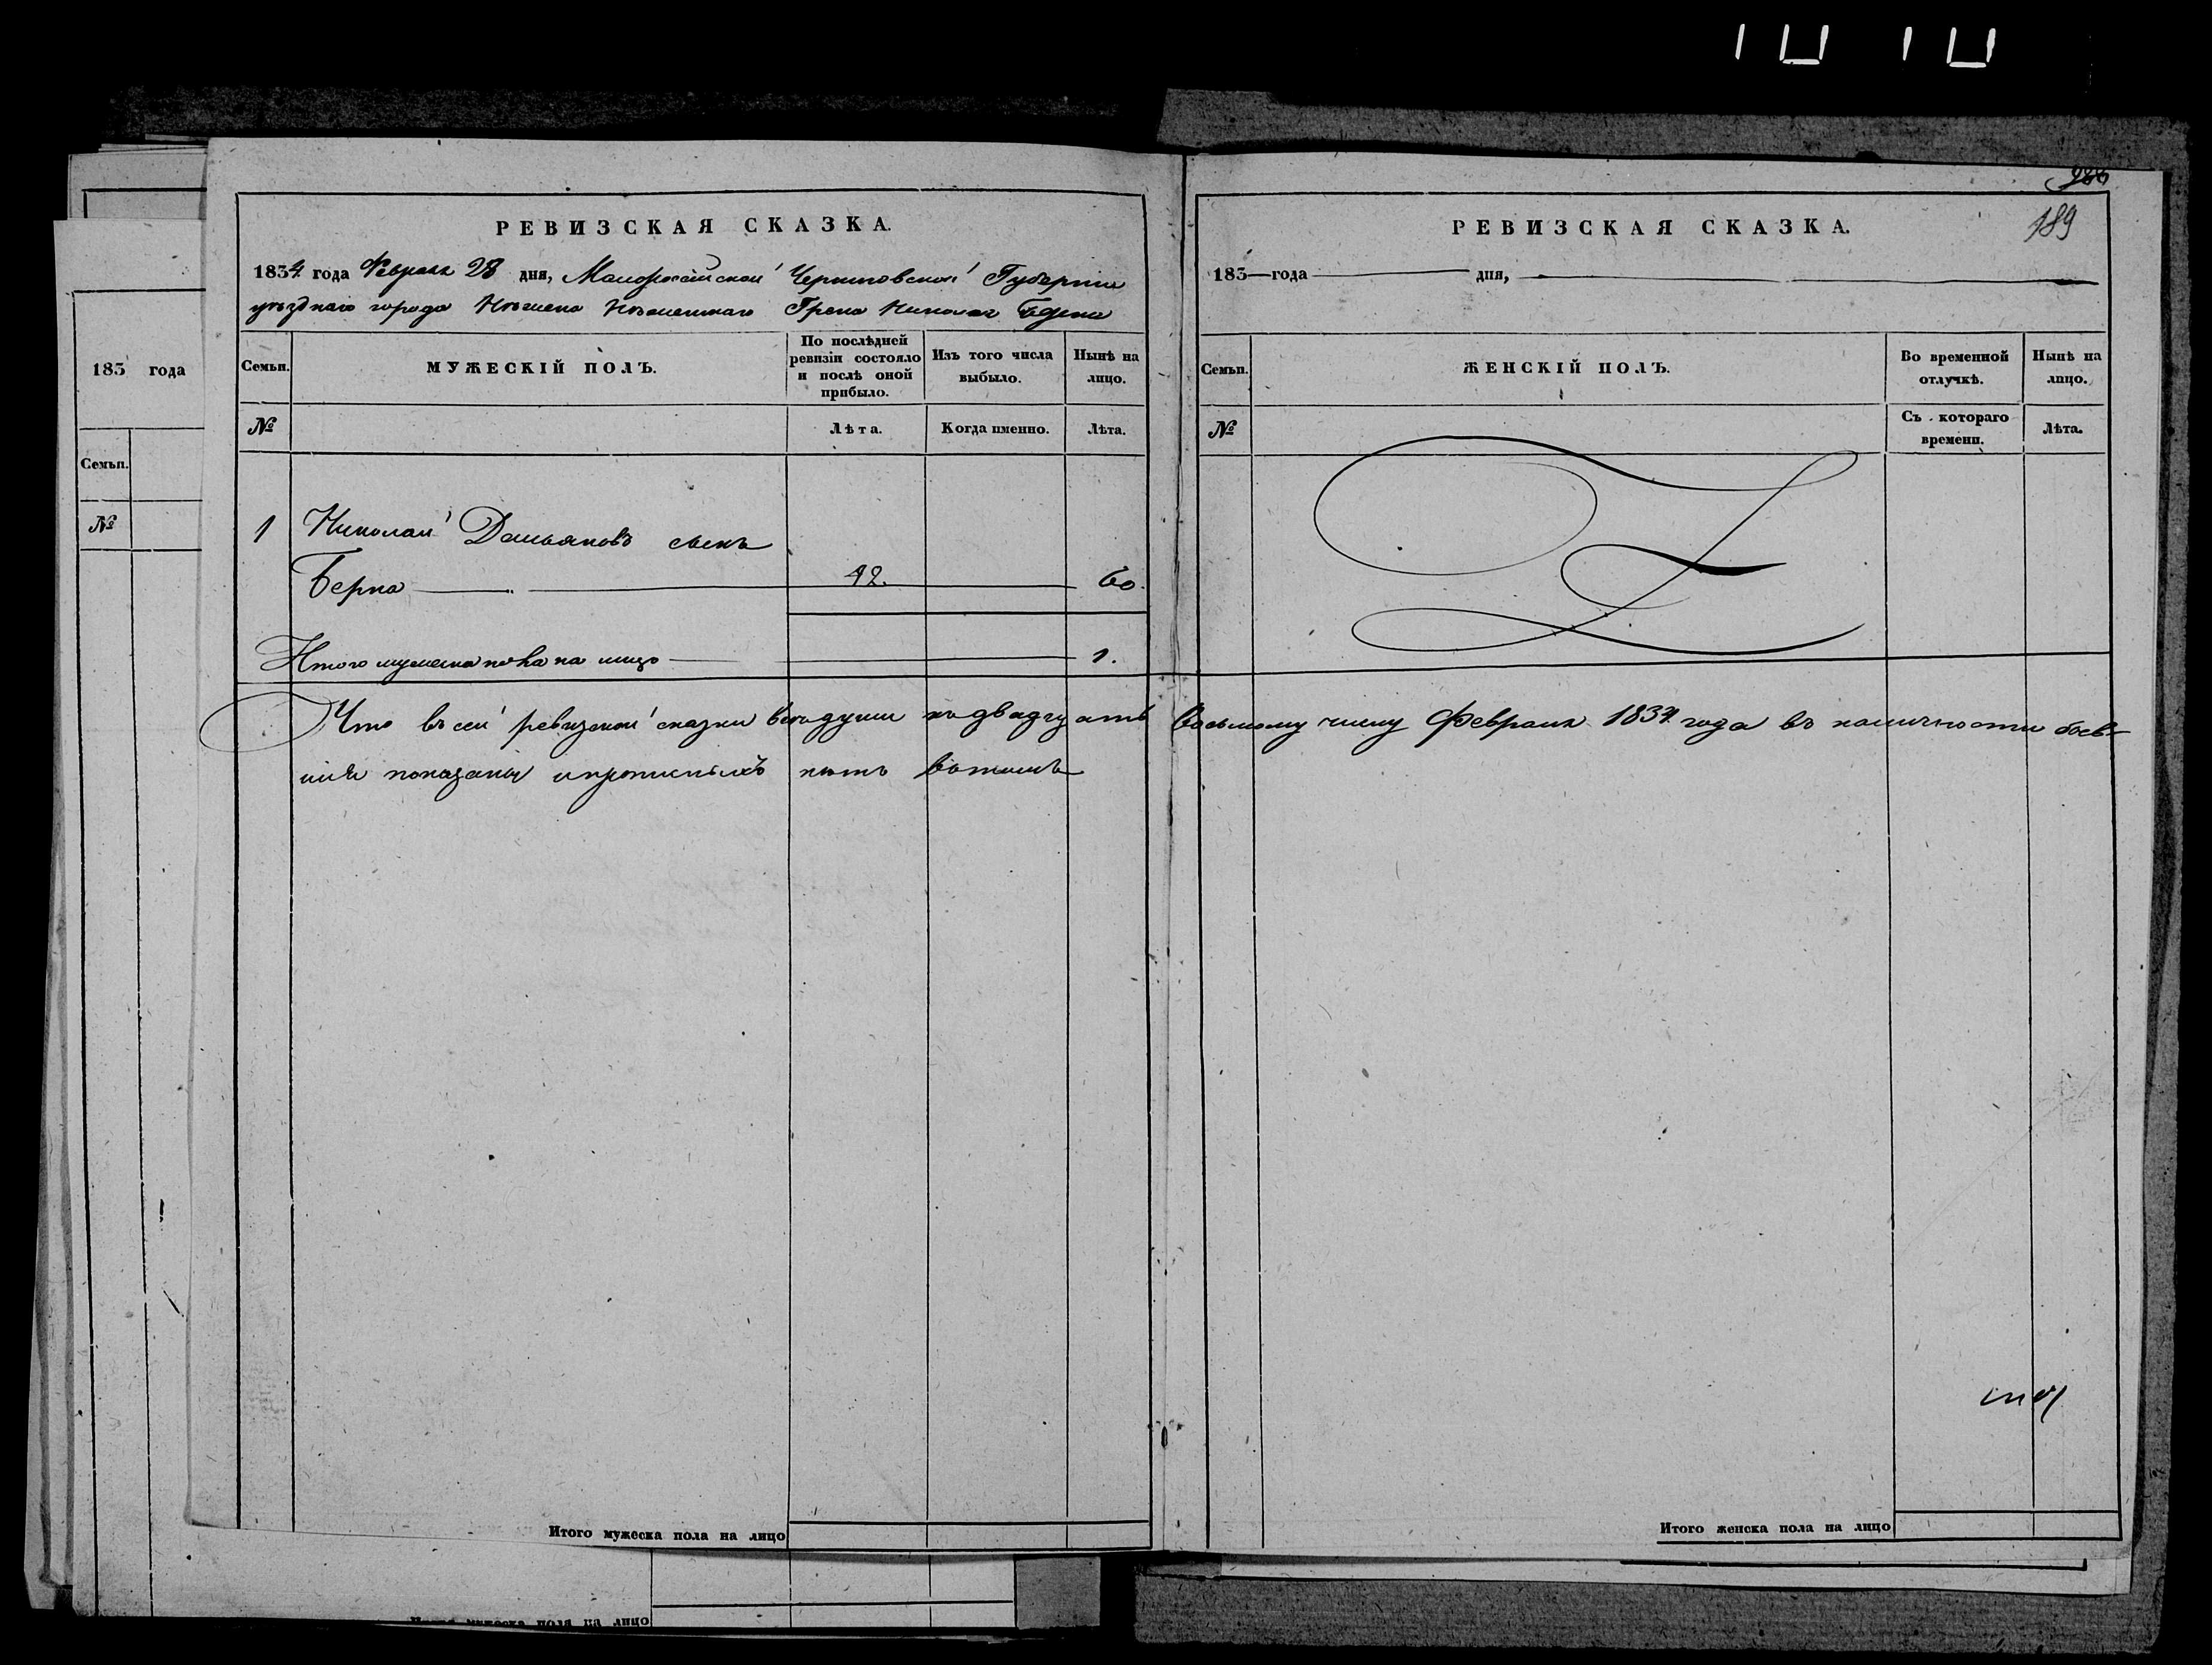 РЕВИЗСКАЯ СКАЗКА.
1834 года Февраля 28 дня, Малоросійской Черниговской Губерніи
уѣзднаго города Нѣжина Нѣжинскаго Грека Николая
Семьи.
МУЖЕСКІЙ ПОЛЪ.
По послѣдней ревизіи состояло и послѣ оной прибыло.
Изъ того числа выбыло.
Нынѣ на лицо.
№
Лѣта.
Когда именно.
Лѣта.
1 Николай Дамьяновъ сынъ
Берка 42. 60.
Итого мужеска пола на лицо 1.
Что въ сей ревизской сказки всѣ души по двадцать восьмому числу Февраля 1834 года въ наличности быв-
шія показаны и прописныхъ нѣтъ
Итого мужеска пола на лицо
РЕВИЗСКАЯ СКАЗКА.
189
183 года дня,
Семьи.
ЖЕНСКІЙ ПОЛЪ.
Во временной отлучкѣ.
Нынѣ на лицо.
№
Съ котораго времени.
Лѣта.
Итого женска пола на лицо
183 года
Семьи.
№
Итого мужеска пола на лицо